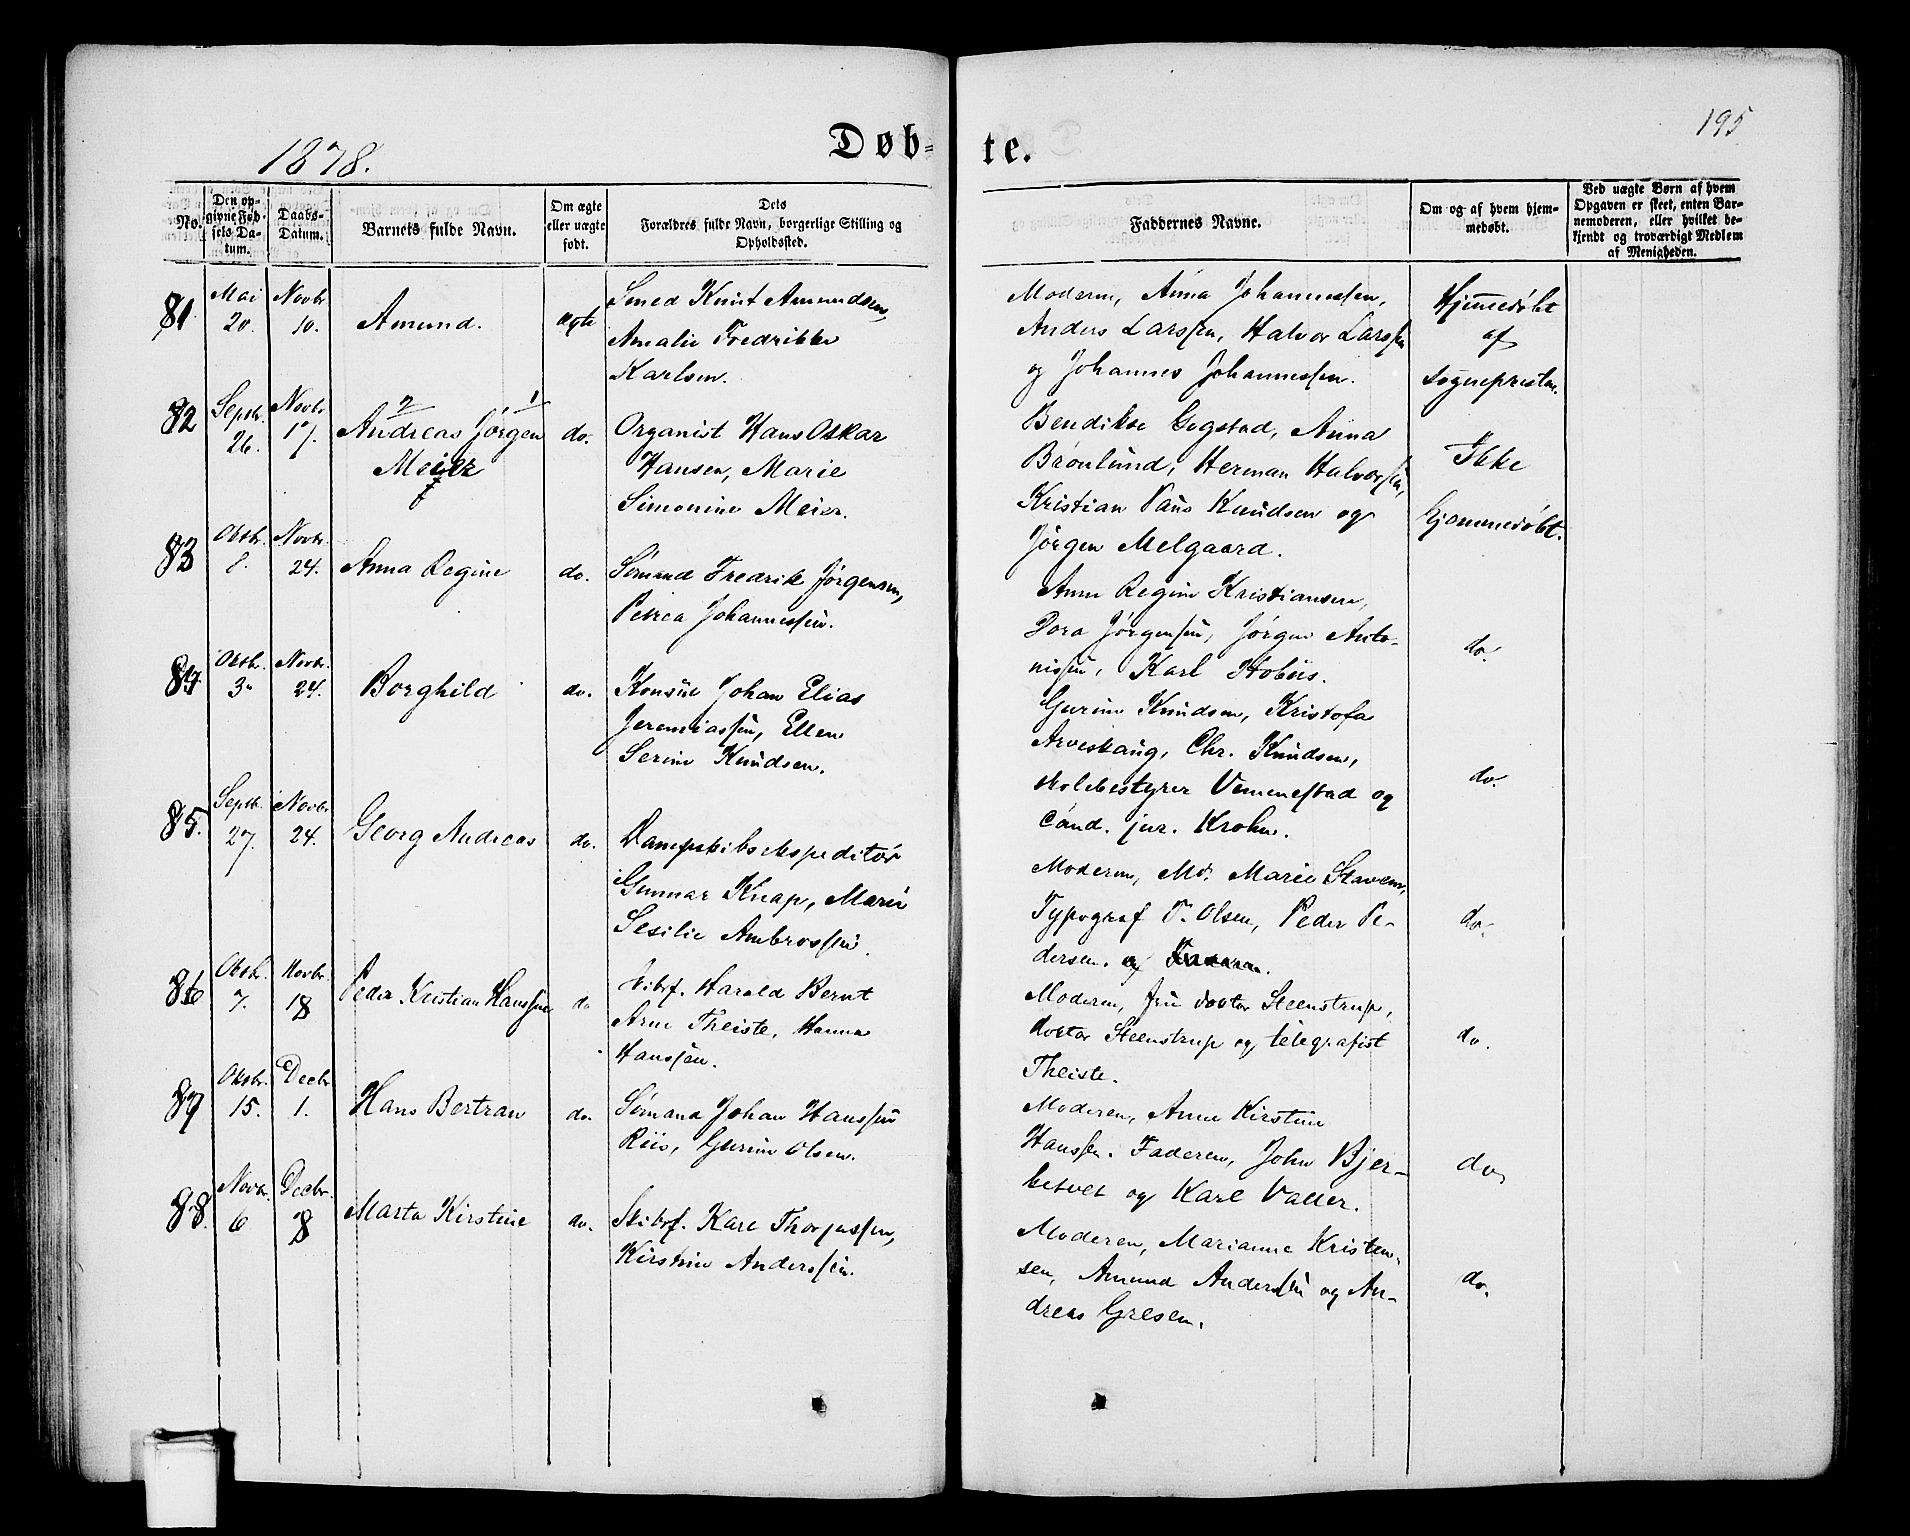 195
1878.
Døb-
te.
No.
Den op-
givne Fød-
sels Da-
tum.
Daabs-
Datum.
Barnets fulde Navn.
Om ægte
eller uægte
født.
Dets
Forældres fulde Navn, borgerlige Stilling og
Opholdssted.
Faddernes Navne.
Om og af hvem hjem-
medøbt.
Ved uægte Børn af hvem
Opgaven er skeet, enten Bar-
nemoderen, eller hvilket be-
kjendt og troværdigt Medlem
af Menigheden.
81
Mai
20.
Novbr
10.
Amund.
ægte
Smed Knut Amundsen,
Amalie Fredrikke
Karlsen.
Moderen, Anna Johannessen,
Anders Larssen, Halvor Larssen
og Johannes Johannessen.
Hjemmedøbt
af
Sognepresten.
82
Septbr.
26.
Novbr
17.
2 1
Andreas Jørgen
Meier
do.
Organist Hans Oskar
Hansen, Marie
Simonine Meier.
Bendikse Gogstad, Anna
Brønlund, Herman Halvorsen,
Kristian Paus Knudsen og
Jørgen Melgaard.
Ikke
Hjemmedøbt.
83
Oktbr.
8.
Novbr.
24.
Anna Regine
do.
Sømand Fredrik Jørgensen,
Petrea Johannessen.
Anne Regine Kristiansen,
Dora Jørgensen, Jørgen Anto-
nissen, Karl Hobøs.
do.
84
Oktbr.
3.
Novbr.
24.
Borghild
do.
Konsul Johan Elias
Jeremiassen, Ellen
Serine Knudsen.
Gurine Knudsen, Kristofa
Arveskaug, Chr. Knudsen,
skolebestyrer Vemmestad og
Cand. jur. Krohn.
do.
85.
Septbr.
27.
Novbr
24.
Georg Andreas
do.
Dampskibsekspeditør
Gunnar Knap, Marie
Sesilie Ambrossen.
Moderen, Md. Marie Staven,
Typograf T. Olsen, Peder Pe-
dersen. og
do.
86
Oktbr.
7.
Novbr.
18
Peder Kristian Hanssen
do
Skibsf. Harald Bernt
Arne Theiste, Hanna
Hanssen.
Moderen, fru doctor Steenstrup,
doctor Steenstrup og telegrafist
Theiste.
do.
87
Oktbr.
15.
Decbr
1.
Hans Bertran
do.
Sømand Johan Hanssen
Riis, Gurine Olsen.
Moderen, Anne Kirstine
Hanssen. Faderen, John Bjer-
ketvet og Karl Valler.
do,
88.
Novbr.
6
Decbr.
8
Marta Kirstine
do.
Skibsf. Karl Thorjussen,
Kirstine Anderssen.
Moderen, Marianne Kristen-
sen, Amund Anderssen og An-
dreas Gresen.
do.